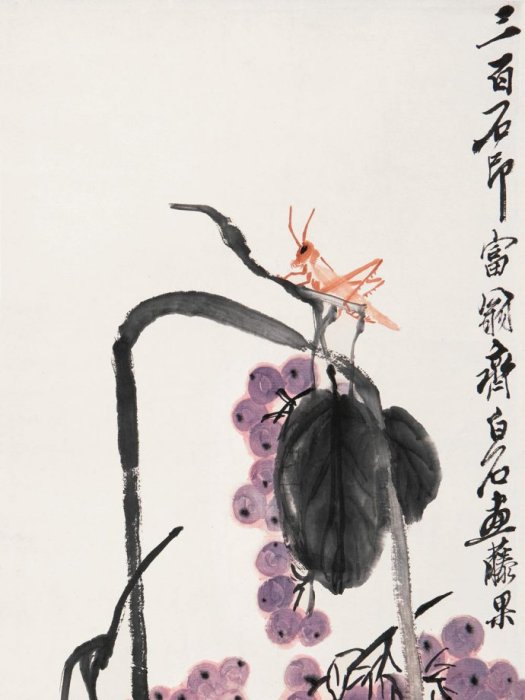 三百石印富翁齊白石画藤果